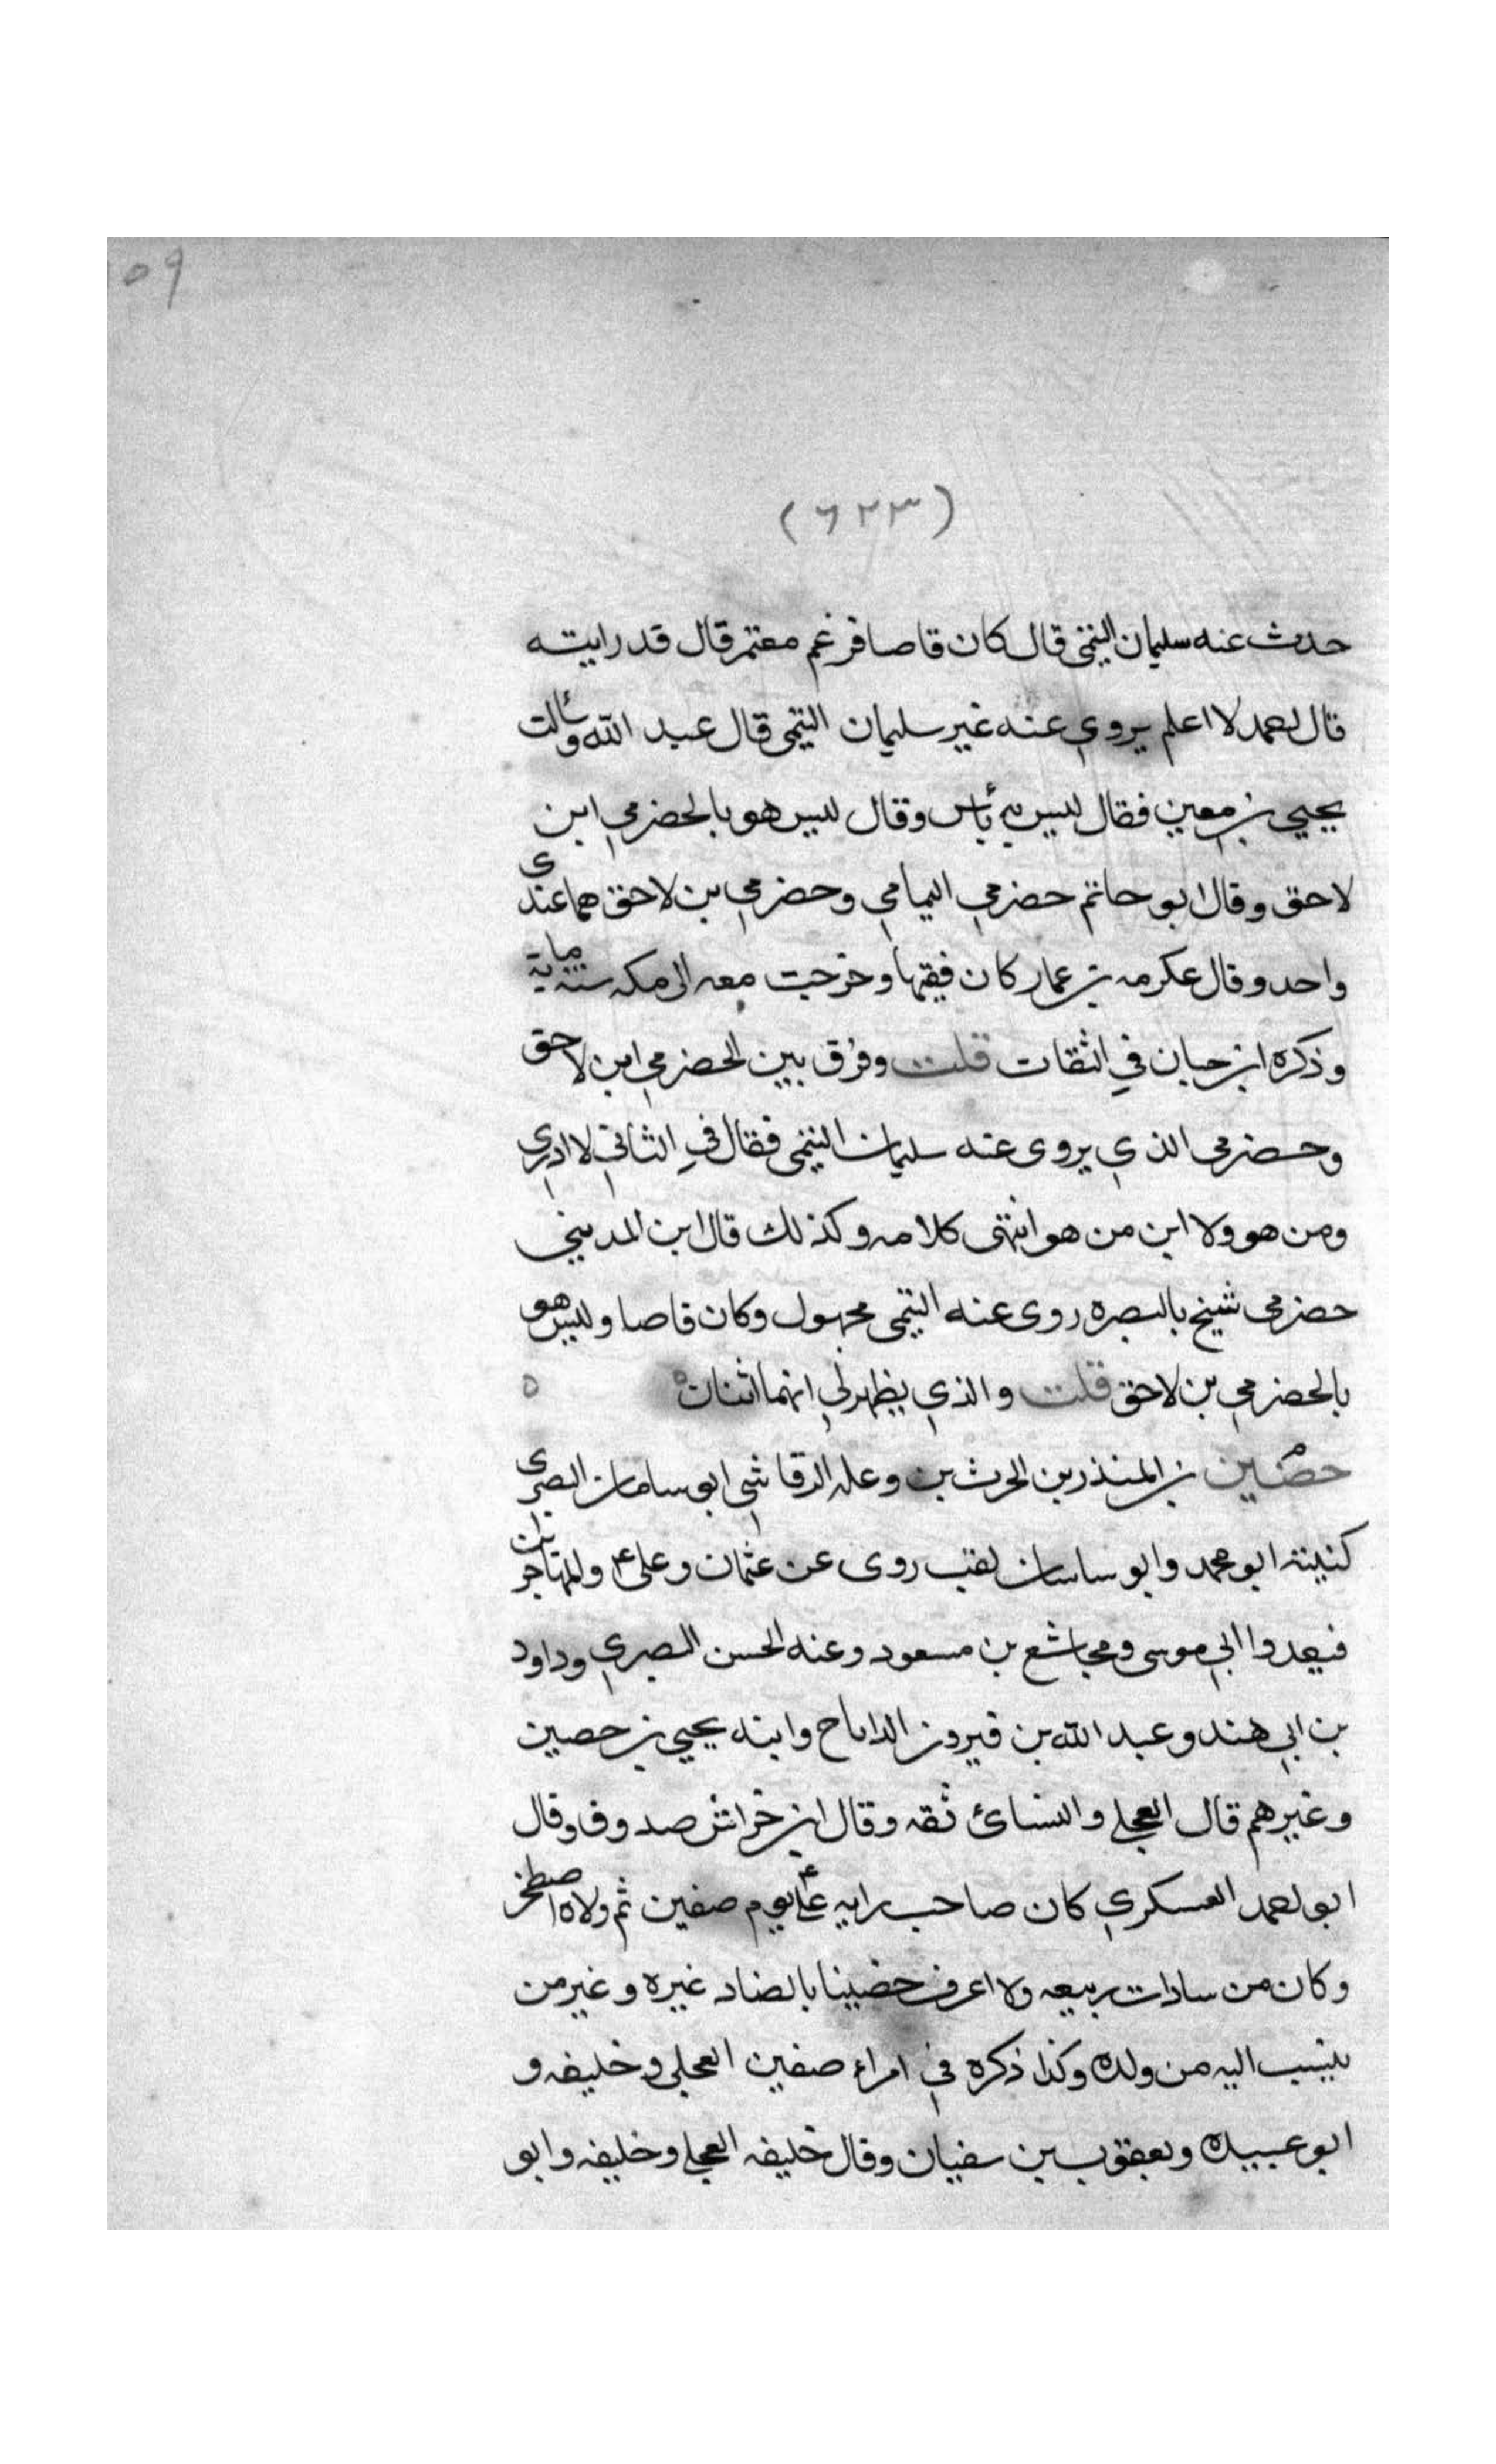 ٥٩
(٦٢٣)
حدث عنه سليمان التيمى قال كان قاصا فزعم معتمر قال قد رايته
قال احمد لا اعلم يروي عنه غير سليمان التيمى قال عبد الله وسألت
يحيي بن معين فقال ليس به بأس وقال ليس هو بالحضرمي ابن
لاحق وقال ابو حاتم حضرمي اليمامي وحضرمي بن لاحق هما عندى
واحد وقال عكرمه بن عمار كان فقيها وخرجت معه الى مكه سنة ماية
وذكره ابن حبان في الثقات قلت وفرق بين الحضرمي ابن لاحق
وحضرمى الذي يروى عنه سليمان التيمى فقال في الثاني لا ادري
ومن هو ولا ابن من هو انتهى كلامه وكذلك قال ابن المديني
حضرمى شيخ بالبصره روى عنه التيمى مجهول وكان قاصا وليس هو
بالحضرمي بن لاحق قلت والذي يظهر لي انهما اثنان ٥ ٥
حضين بن المنذر بن الحرث بن وعله الرقاشي ابو ساسان البصرى
كنيته ابو محمد وابو ساسان لقب روى عن عثمان وعلي والمهاجر بن
قنفد وابي موسى ومجاشع بن مسعود وعنه الحسن البصري وداود
بن ابي هند وعبد الله بن فيروز الداناج وابنه يحيي بن حصين
وغيرهم قال العجلي والنسائ ثقه وقال ابن خراش صدوق وقال
ابو احمد العسكري كان صاحب رايه علي يوم صفين ثم ولاه اصطخر
وكان من سادات ربيعه ولا اعرف حضينا بالضاد غيره وغير من
ينسب اليه من ولده وكذا ذكره في امراء صفين العجلي وخليفه و
ابو عبيده ويعقوب بن سفيان وقال خليفه العجلي وخليفه وابو